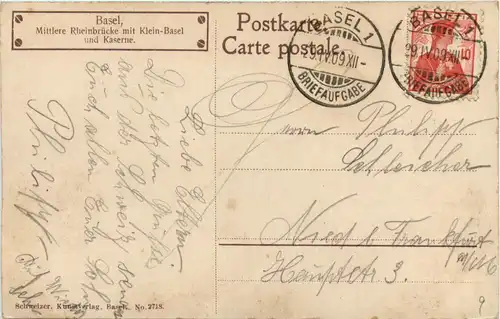 Basel,
Mittlere Rheinbrücke mit Klein-Basel
und Kaserne.
Postkarte
Carte postale
BASEL 1
29.IV.09.XII-
BRIEFAUFGABE
BASEL 1
29.IV.09.XII-
BRIEFAUFGABE
10
Liebe Eltern!
Die letzten Grüße
aus der Schweiz sendet
Euch allen Euer Sohn
Philipp
Auf
Wieder
sehn
Herrn Philipp
Schleicher
Nied b. Frankfurt
a/M
Hauptstr. 3.
9
Schweizer. Kunstverlag, Basel. No. 2718.